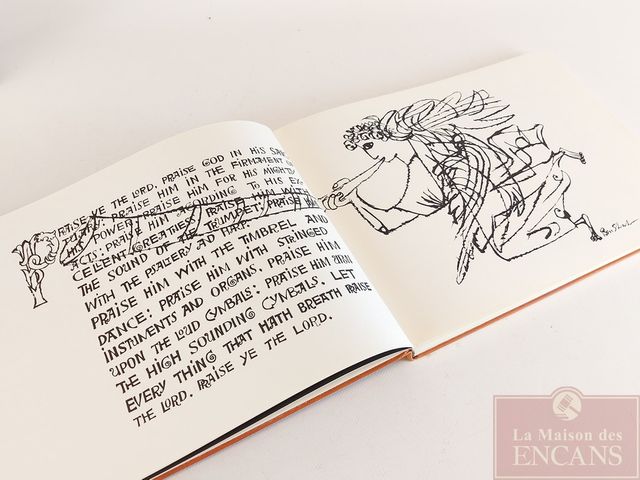 PRAISE YE THE LORD. PRAISE GOD IN HIS SANC
PRAISE HIM IN THE FIRMAMENT OF
HIS POWER. PRAISE HIM FOR HIS MIGHTY
ACTS: PRAISE HIM ACCORDING TO HIS EX-
CELLENT GREATNESS. PRAISE HIM WITH
THE SOUND OF THE TRUMPET: PRAISE HIM
WITH THE PSALTERY AND HARP.
PRAISE HIM WITH THE TIMBREL AND
DANCE: PRAISE HIM WITH STRINGED
INSTRUMENTS AND ORGANS. PRAISE HIM
UPON THE LOUD CYMBALS: PRAISE HIM UPON
THE HIGH SOUNDING CYMBALS. LET
EVERY THING THAT HATH BREATH PRAISE
THE LORD. PRAISE YE THE LORD.
Ben Shahn
La Maison des
ENCANS